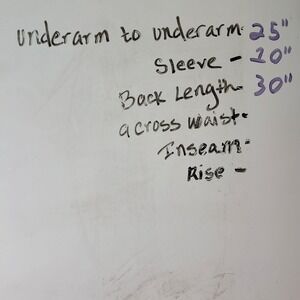 underarm to underarm- 25"
Sleeve - 20"
Back Length- 30"
across waist-
Inseam-
Rise -